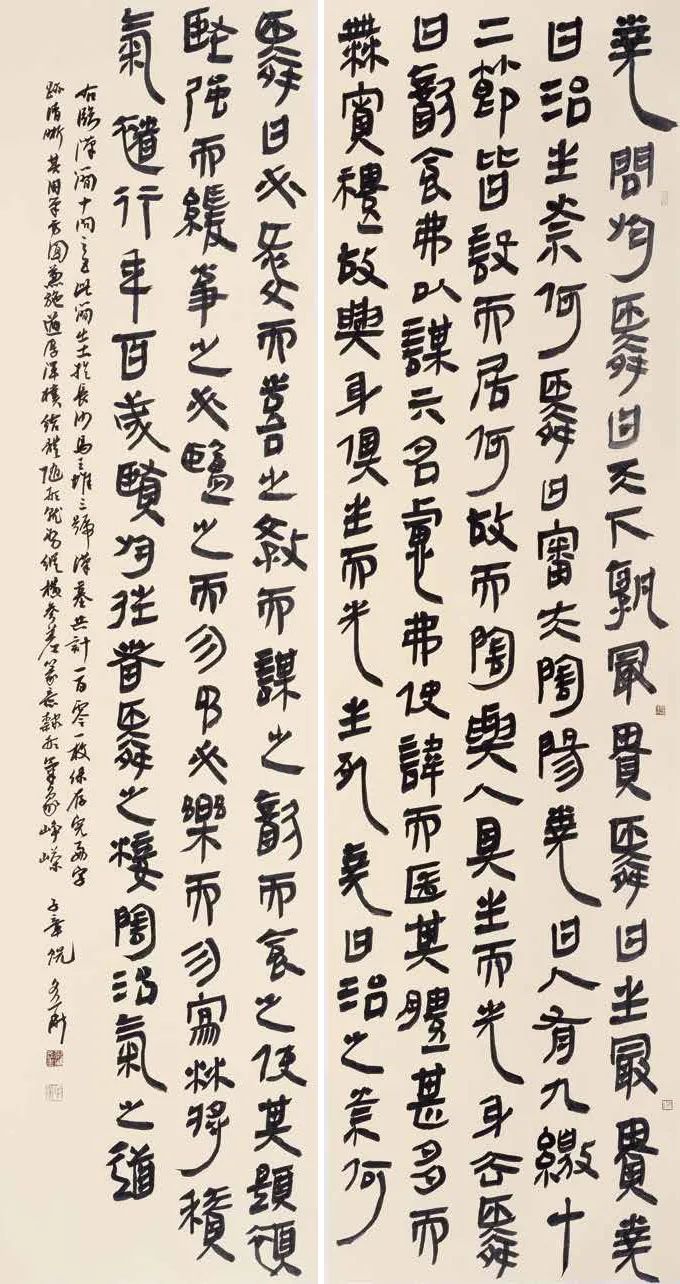 堯問於舜曰天下孰最貴舜曰生最貴堯
曰治生奈何舜曰審夫陰陽堯曰人有九繳十
二節皆設而居何故而陰與人具生而先身去舜
曰飲食弗以謀六名慮弗使諱而匿其體甚多而
無寬禮故與身俱生而先生死堯曰治之奈何
舜曰必愛而喜之教而謀之飲而食之使其題頯
堅強而緩事之必鹽之而勿予必樂而勿寫材將積
氣褚行年百歲賢於往者舜之椄陰治氣之道
右臨漢簡十問之此簡出土於長沙馬王堆三號漢墓共計一百零一枚保存完好字
跡清晰其用筆方圓兼施遒厚渾樸結體隨形就勢縱橫參差篆意隸形筆象崢嶸 子章